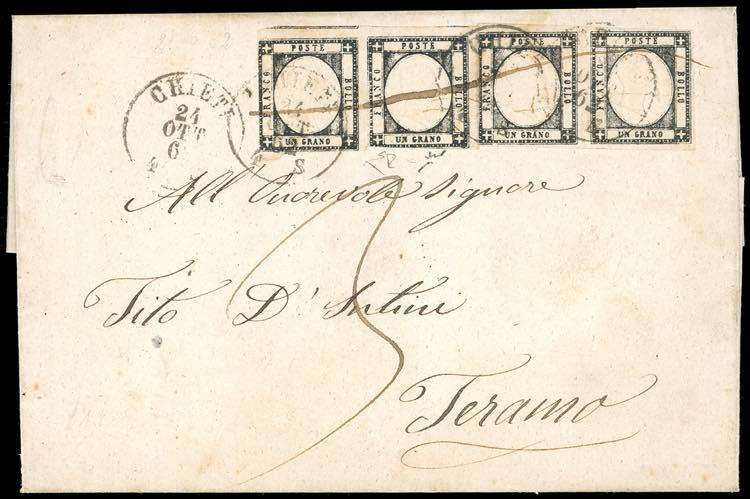 POSTE FRANCO BOLLO UN GRANO
POSTE FRANCO BOLLO UN GRANO
POSTE FRANCO BOLLO UN GRANO
POSTE FRANCO BOLLO UN GRANO
CHIETI
24
OTT
6
4
24
4 S
All'Onorevole Signore
Tito D'Intine
Teramo